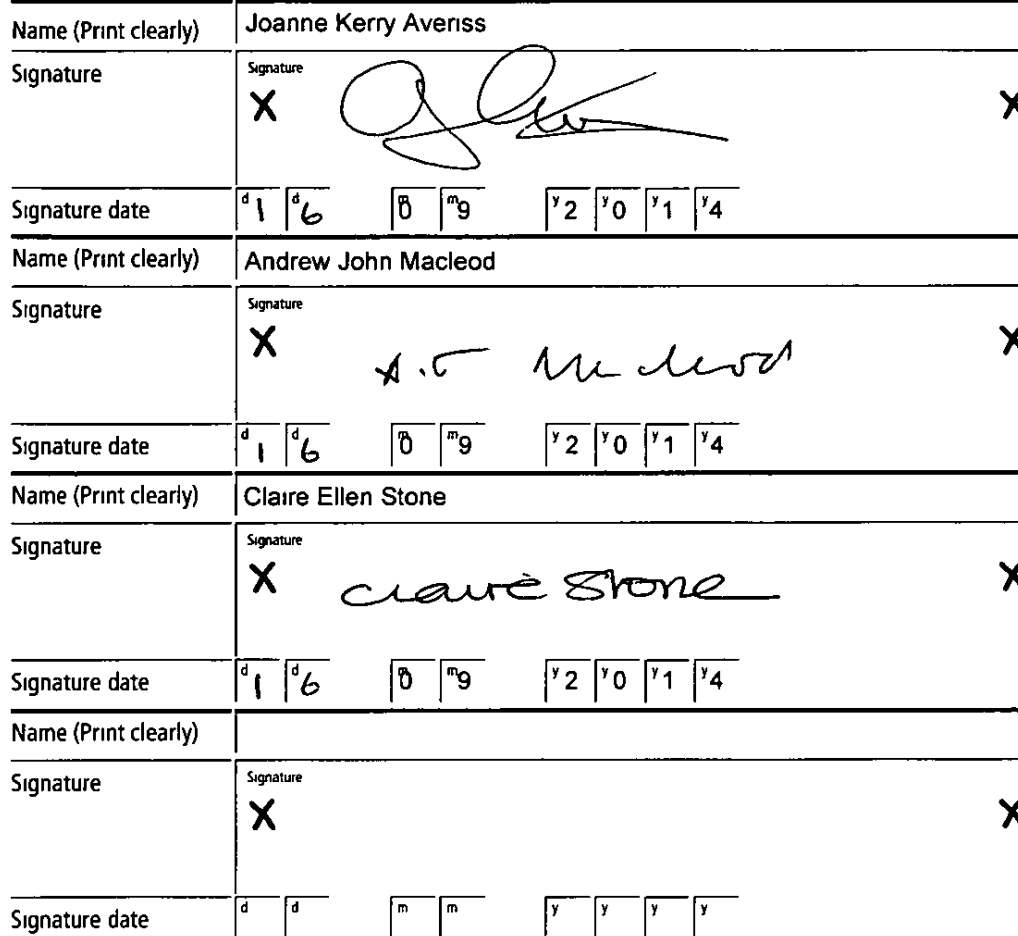 Name (Print clearly) Joanne Kerry Averiss
Signature Signature
X X
Signature date d1 d6 m0 m9 y2 y0 y1 y4
Name (Print clearly) Andrew John Macleod
Signature Signature
X A.J Macleod X
Signature date d1 d6 m0 m9 y2 y0 y1 y4
Name (Print clearly) Claire Ellen Stone
Signature Signature
X Claire Stone X
Signature date d1 d6 m0 m9 y2 y0 y1 y4
Name (Print clearly)
Signature Signature
X X
Signature date d d m m y y y y